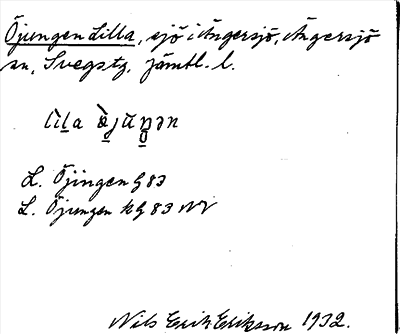 Öjungen Lilla, sjö i Ängersjö, Ängersjö
sn, Svegstg, jämtl. l.
lìl̠a
L. Öjingen G 83
L. Öjungen KG 83 NV
Nils Erik Eriksson 1932.